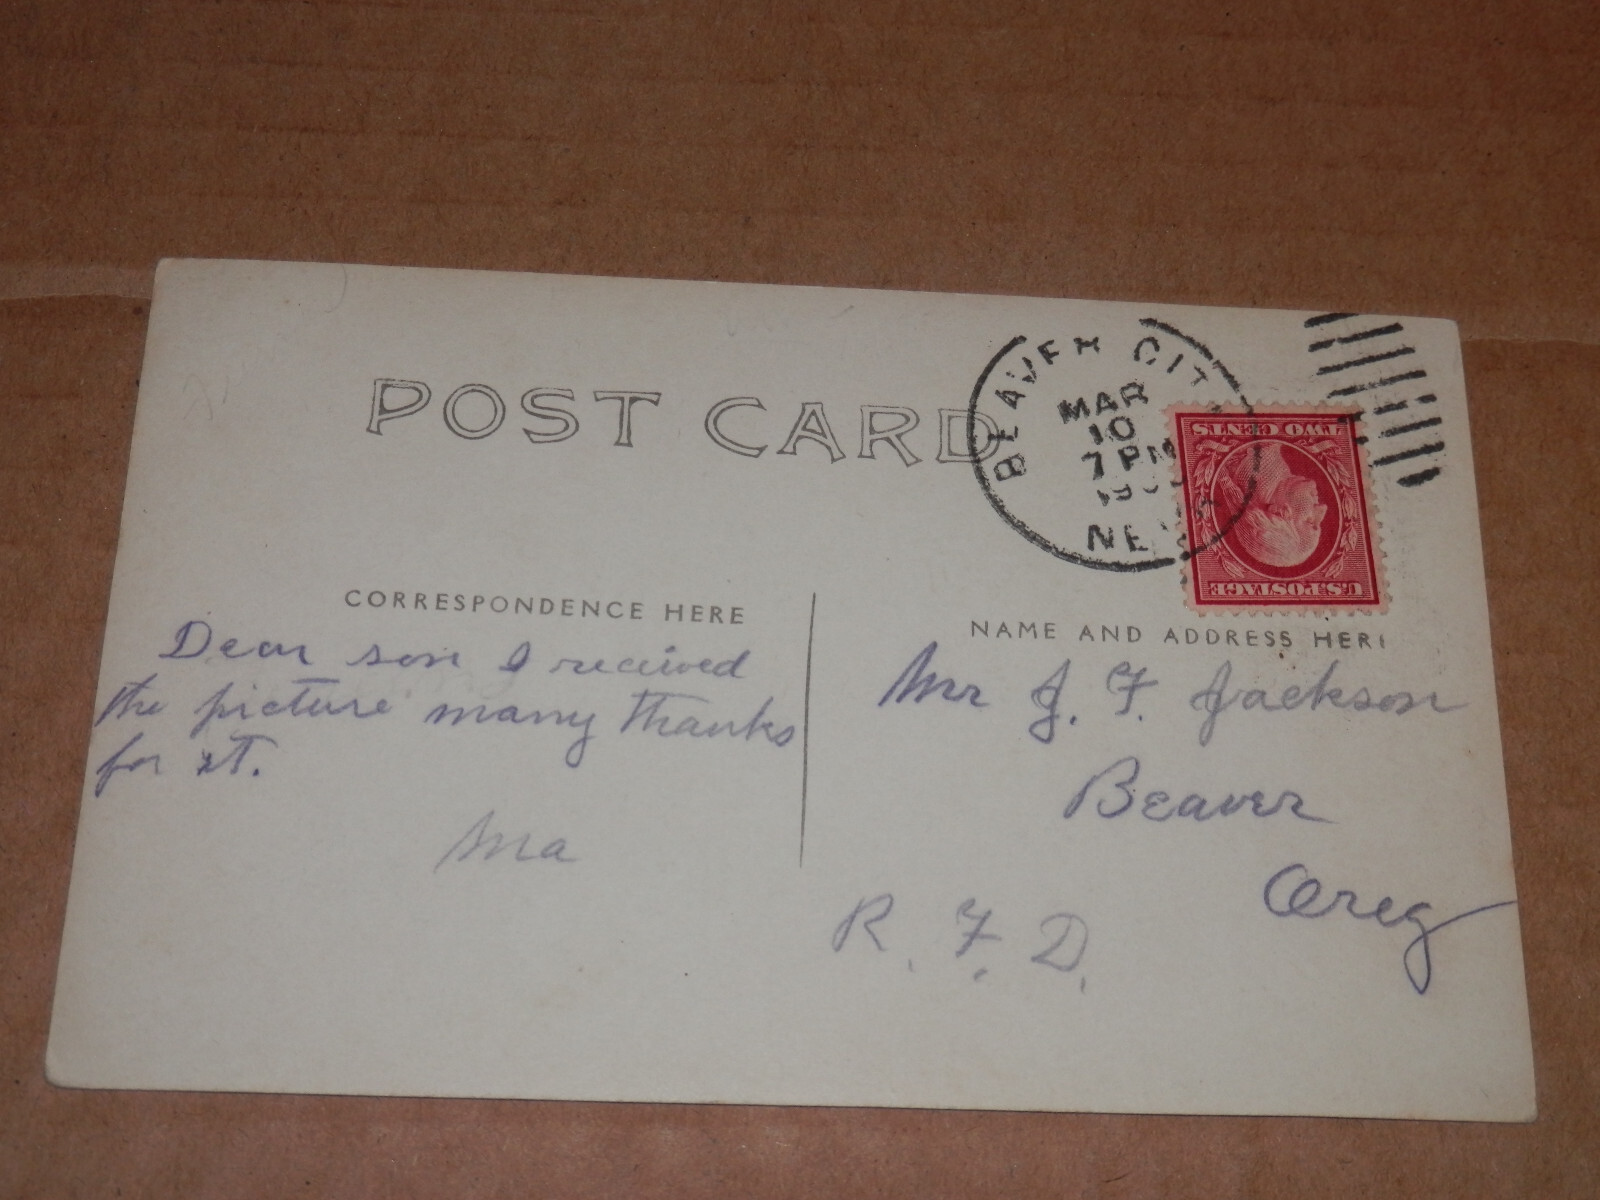 POST CARD
BEAVER CITY
MAR
10
7 PM
NEBR
TWO CENTS
U.S. POSTAGE
CORRESPONDENCE HERE
Dear son I received
the picture many thanks
for it.
Ma
NAME AND ADDRESS HERE
Mr J. F. Jackson
Beaver
Oreg
R. F. D.